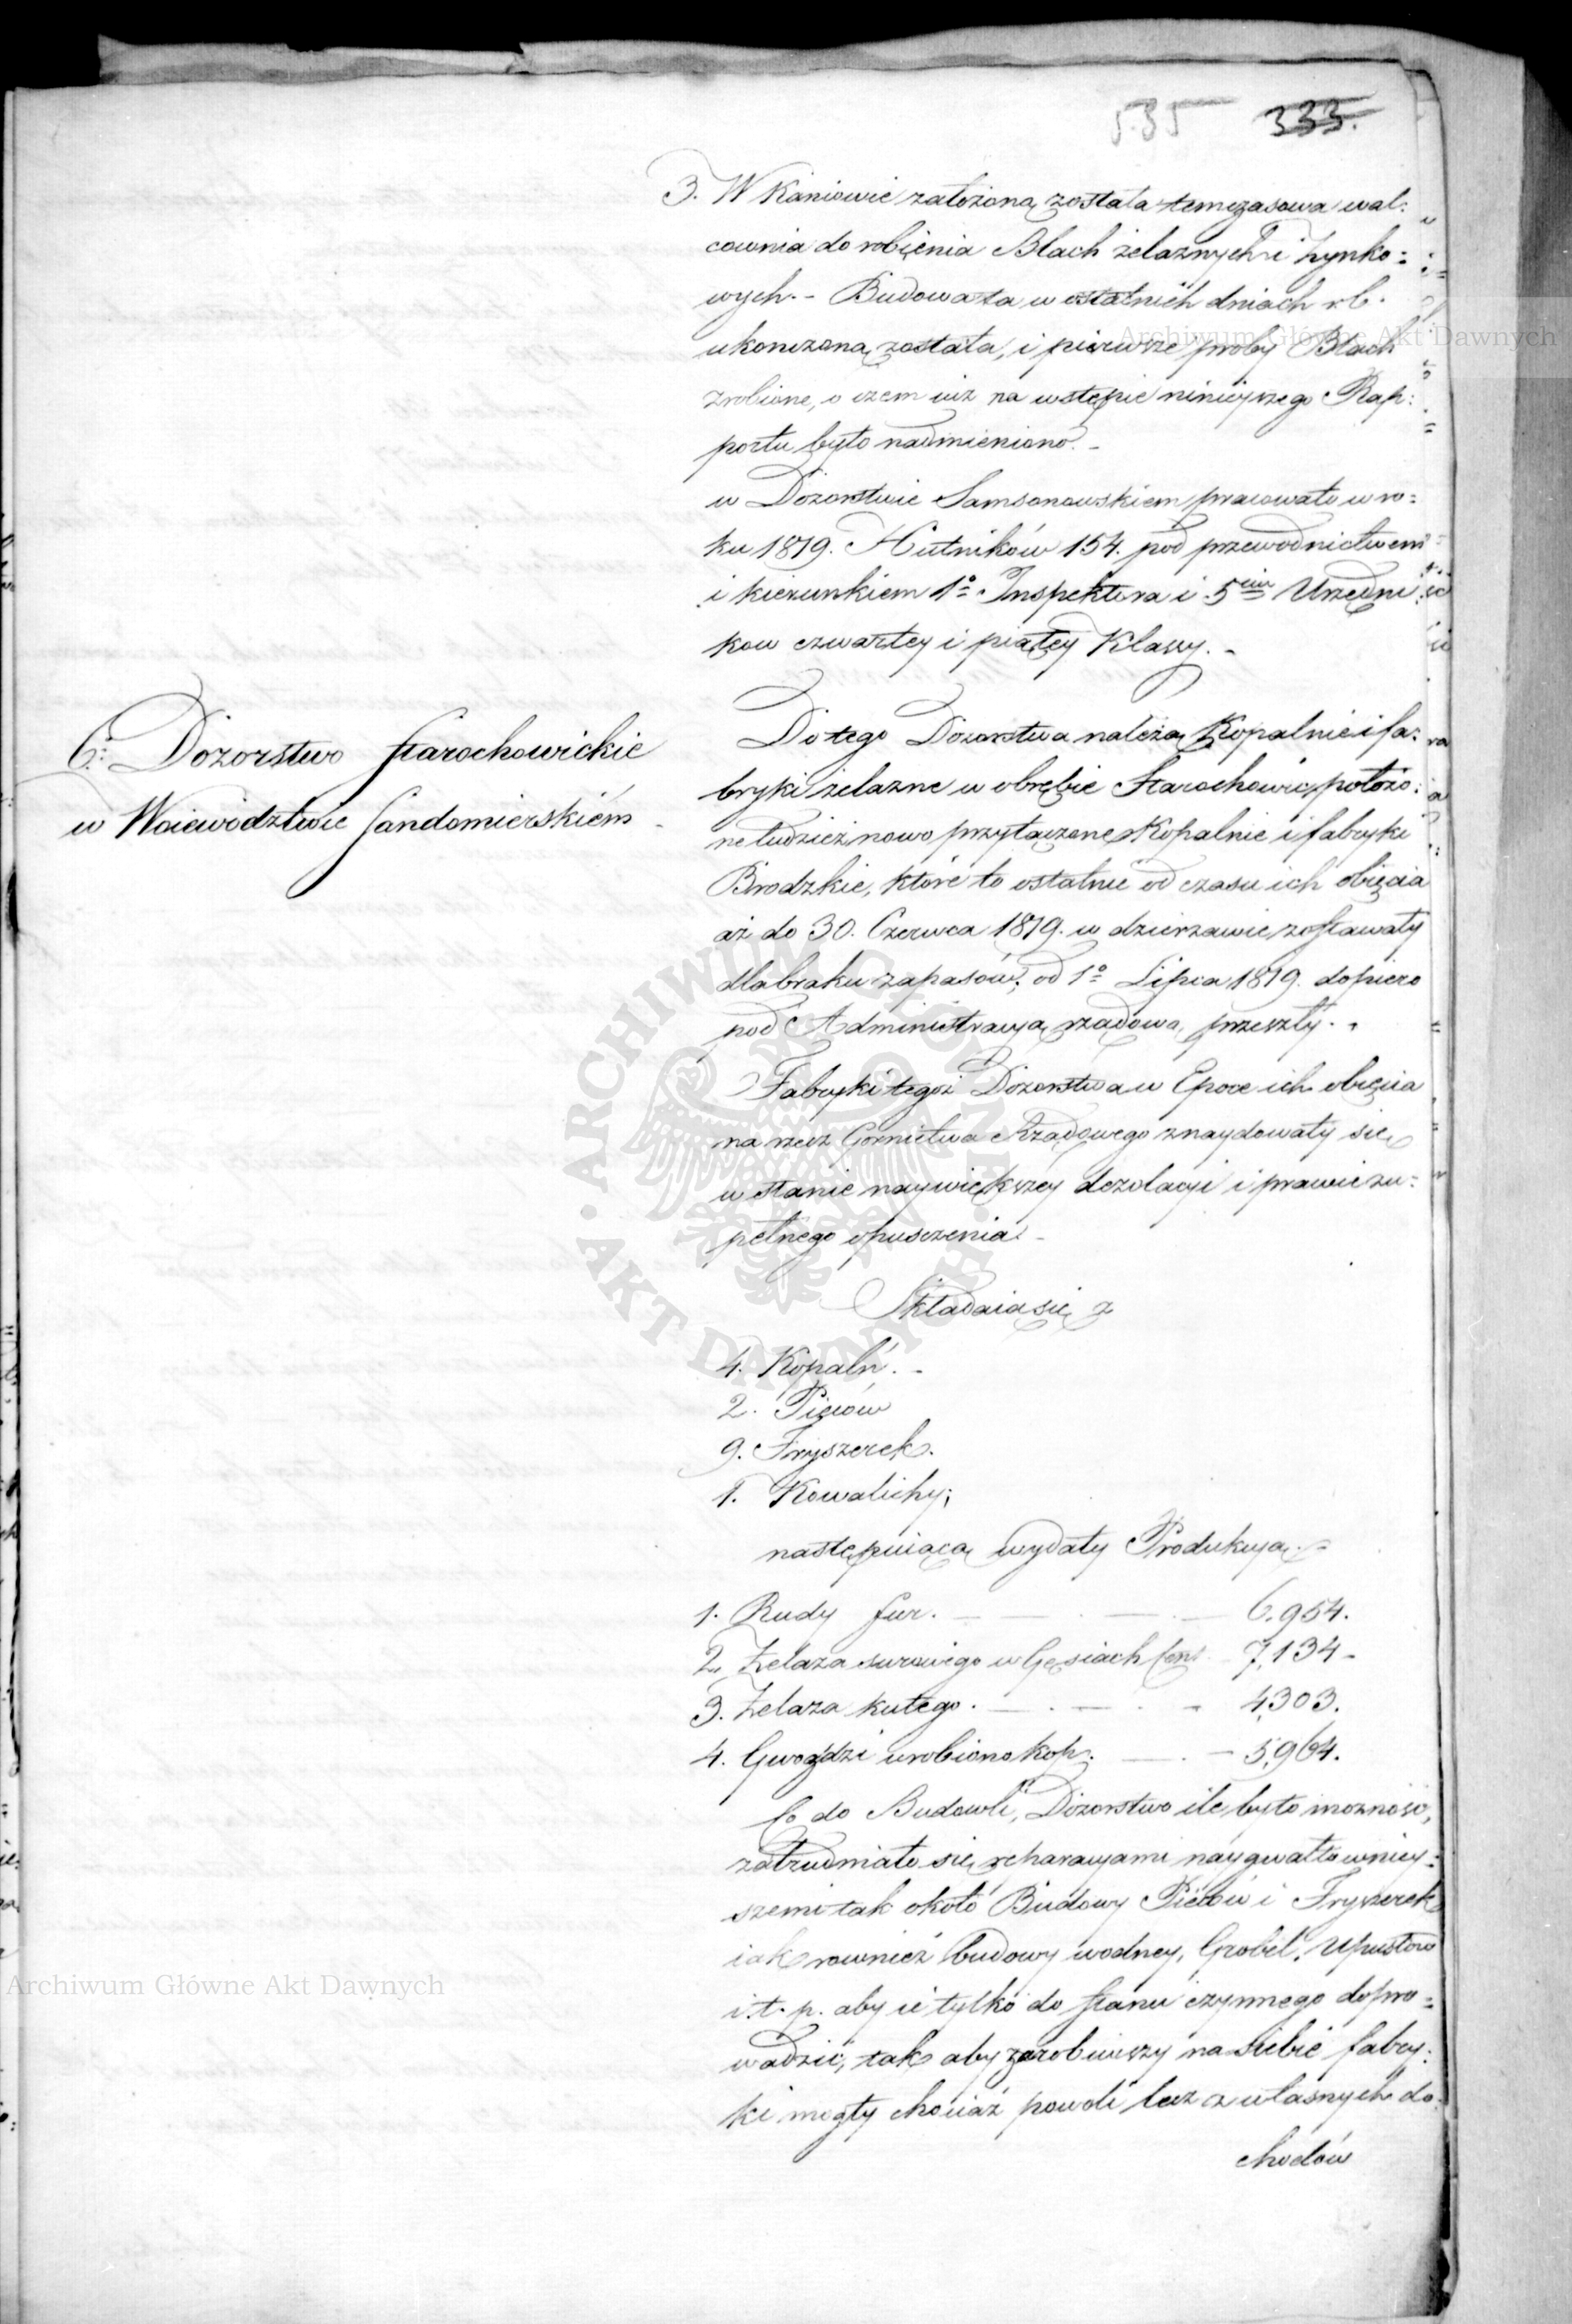 535 333.
3. W Kaniowie założoną została temczasowa wal:
cownia do robienia Blach żelaznych i Zynko:
wych. - Budowa ta w ostatnich dniach r.b.
ukończoną została, i pierwsze proby Blach
zrobione, o czem iuż na wstępie ninieyszego Rap:
portu było nadmieniono. -
w Dozorstwie Samsonowskiem pracowało w ro:
ku 1819. Hutników 154. pod przewodnictwem
i kierunkiem 1º Inspektora i 5ciu Urzędni:
kow czwartey i piątey Klassy. -
6: Dozorstwo Starochowickie
w Woiewództwie Sandomierskiem
Do tego Dozorstwa należą Kopalnie i fa:
bryki żelazne w obrębie Starochowic położo:
ne tudzież nowo przyłączone Kopalnie i fabryki
Brodzkie, które to ostatnie od czasu ich obięcia
aż do 30. Czerwca 1819. w dzierzawie zostawały
dla braku zapasów; od 1º Lipca 1819. dopiero
pod Administracyą rządową przeszły. -
Fabryki tegoż Dozorstwa w Epoce ich obięcia
na rzecz Gornictwa Rządowego znaydowały się
w stanie naywiększey dezolacyi i prawie zu:
pełnego opuszczenia. -
Składaią się z
4. Kopalń. -
2. Pieców
9. Fryszerek.
1. Kowalichy;
następuiącą wydały Produkcyą. -
1. Rudy fur. - 6,954.
2. Żelaza surowego w Gęsiach Cent. 7,134 -
3. Żelaza kutego. - 4,303.
4. Gwoździ urobiono kop. - 5,964.
Co do Budowli, Dozorstwo ile było możność,
zatrudniało się reparacyami naygwałtowniey:
szemi tak około Budowy Pieców i Fryszerek
iak rownież budowy wodney, Grobel, Upustow
i.t.p. aby ie tylko do stanu czynnego dopro:
wadzić, tak aby zarobiwszy na siebie fabry:
ki mogły chociaż powoli lecz z własnych do:
chodów
Archiwum Główne Akt Dawnych
Archiwum Główne Akt Dawnych
ARCHIWUM GŁÓWNE · AKT DAWNYCH ·